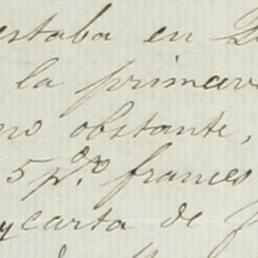 estaba en
la primave
no obstante,
5 p.% frances
y carta de